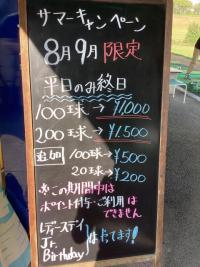 サマーキャンペーン
8月9月 限定
平日のみ終日
100球→¥1,000
200球→¥1,500
追加 100球→¥500
20球→¥200
※この期間中は
ポイント付与・ご利用は
できません
レディースデイ
Jr.
Birthday
はたてます!